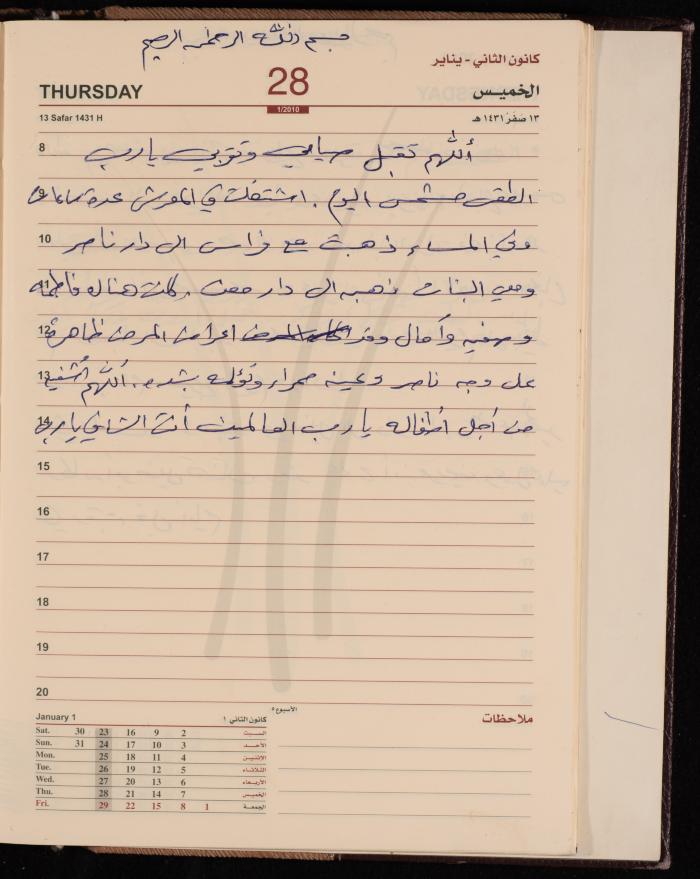 بسم الله الرحمن الرحيم
كانون الثاني - يناير
THURSDAY 28 الخميس
1/2010
13 Safar 1431 H ١٣ صَفَر ١٤٣١ هـ
8 اللهم تقبل صيامي وتوبتي يا رب
9 الطقس مشمس اليوم . اشتغلت في المفرش عدة ساعات
10 وفي المساء ذهبت مع فراس ال دار ناصر
11 ومعي البنات ذهبه ال دار معن وكانت هناك فاطمه
12 وصفيه وآمال وقد اعراض المرض ظاهرة
13 عل وجه ناصر وعينه حمراء وتؤلمه بشده . اللهم أشفيه
14 من أجل أطفاله يا رب العالمين أنت الشافي يا رب
15
16
17
18
19
20
January 1 كانون الثاني ١ الأسبوع ٥ ملاحظات
Sat. 30 23 16 9 2 السبت
Sun. 31 24 17 10 3 الأحد
Mon. 25 18 11 4 الإثنين
Tue. 26 19 12 5 الثلاثاء
Wed. 27 20 13 6 الأربعاء
Thu. 28 21 14 7 الخميس
Fri. 29 22 15 8 1 الجمعة